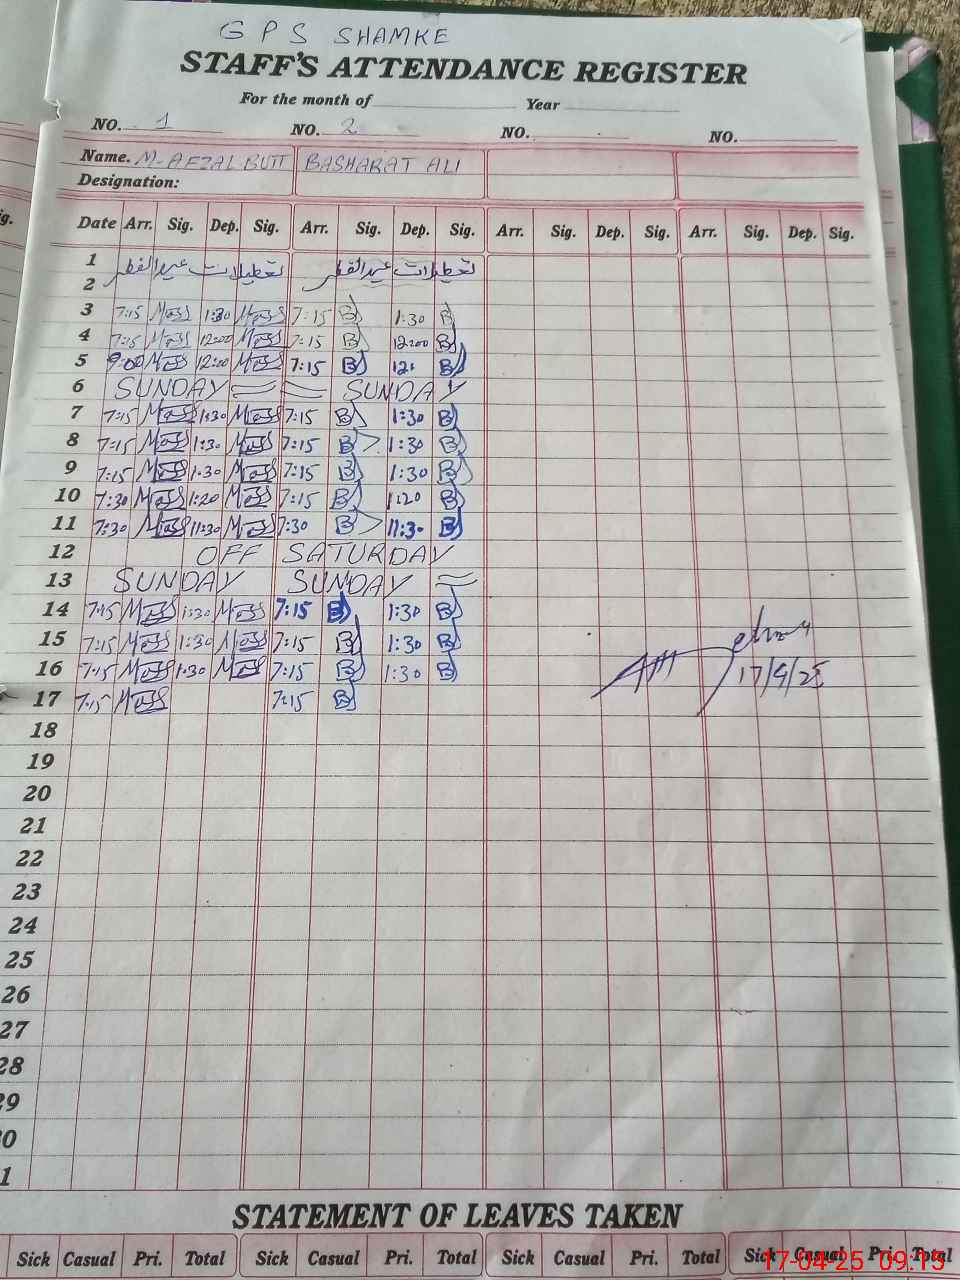 G P S SHAMKE
STAFF'S ATTENDANCE REGISTER
For the month of Year
NO. 1 NO. 2 NO. NO.
Name. M-AFZAL BUTT BASHARAT ALI
Designation:
Date Arr. Sig. Dep. Sig. Arr. Sig. Dep. Sig. Arr. Sig. Dep. Sig. Arr. Sig. Dep. Sig.
1
تعطیلات عیدالفطر تعطیلات عیدالفطر
2
3 7:15 1:30 7:15 B 1:30 B
4 7:15 12:00 7:15 B 12:00 B
5 9:00 12:00 7:15 B 12: B
6 SUNDAY SUNDAY
7 7:15 1:30 7:15 B 1:30 B
8 7:15 1:30 7:15 B 1:30 B
9 7:15 1:30 7:15 B 1:30 B
10 7:30 1:20 7:15 B 1:20 B
11 7:30 11:30 7:30 B 11:30 B
12 OFF SATURDAY
13 SUNDAY SUNDAY
14 7:15 1:30 7:15 B 1:30 B
15 7:15 1:30 7:15 B 1:30 B
16 7:15 1:30 7:15 B 1:30 B
17/4/25
17 7:15 7:15 B
18
19
20
21
22
23
24
25
26
27
28
29
30
1
STATEMENT OF LEAVES TAKEN
Sick Casual Pri. Total Sick Casual Pri. Total Sick Casual Pri. Total Sick Casual Pri. Total
17-04-25 09:15